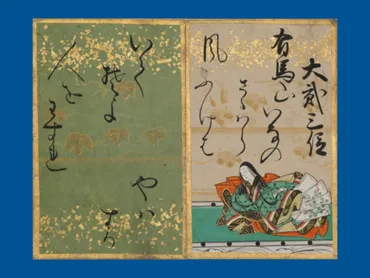 大貳三位
有馬山いなの
さゝはら
風ふけは
いてそよ
人をわすれ
やは
する